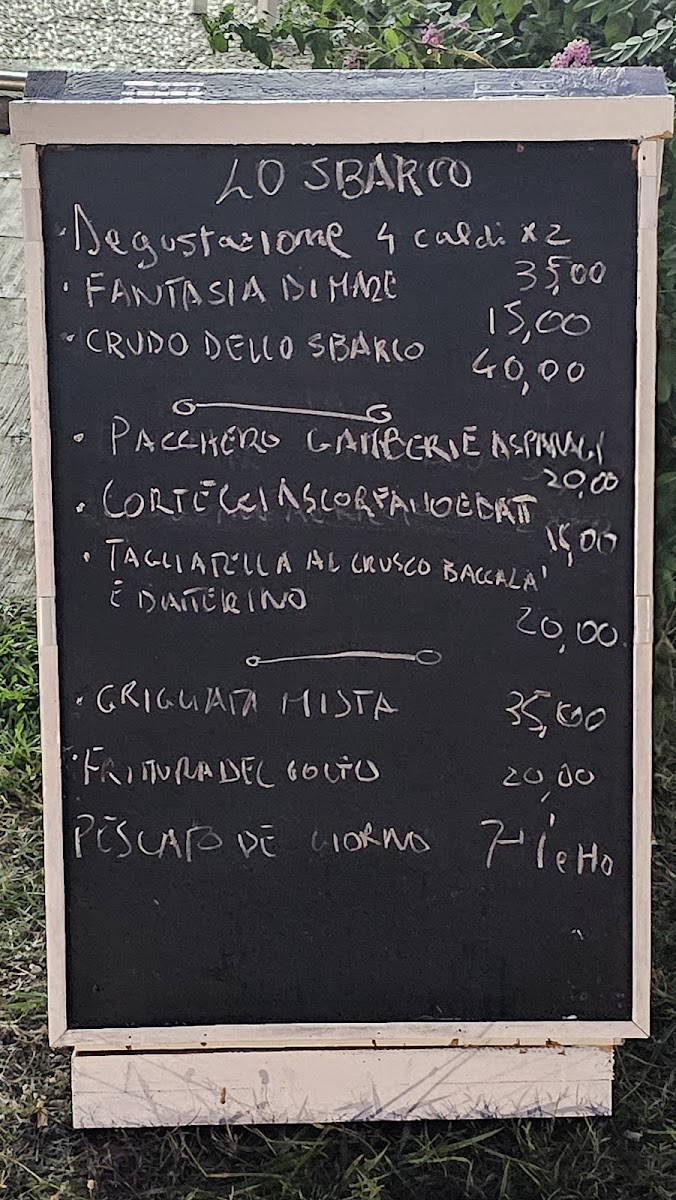 LO SBARCO
• Degustazione 4 caldi x2
35,00
• FANTASIA DI MARE
15,00
• CRUDO DELLO SBARCO
40,00
• PACCHERO GAMBERI E ASPARAGI
20,00
• CORTECCIA SCORFANO E DATT
18,00
• TAGLIATELLA AL CRUSCO BACCALA'
E DATTERINO
20,00
• GRIGLIATA MISTA 35,00
• FRITTURA DEL GOLFO 20,00
PESCATO DE GIORNO 7- l'etto